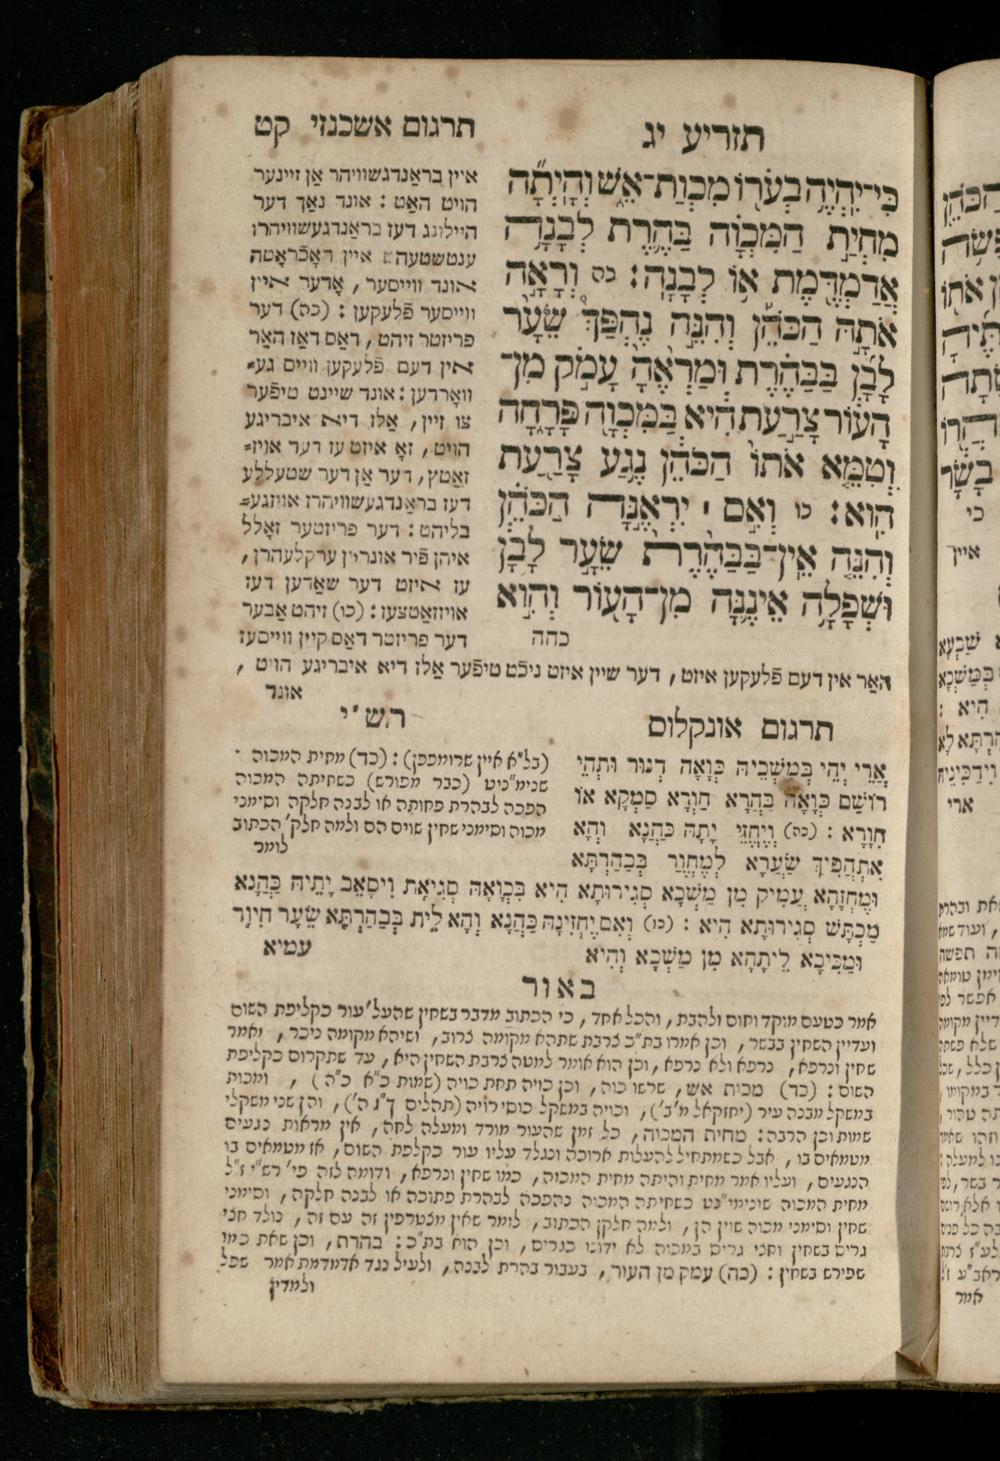 תזריע יג
תרגום אשכנזי קט
כִּי־יִהְיֶה בְעֹרוֹ מִכְוַת־אֵשׁ וְהָיְתָה
מִחְיַת הַמִּכְוָה בַּהֶרֶת לְבָנָה
אֲדַמְדֶּמֶת אוֹ לְבָנָה׃ כה וְרָאָה
אֹתָהּ הַכֹּהֵן וְהִנֵּה נֶהְפַּךְ שֵׂעָר
לָבָן בַּבַּהֶרֶת וּמַרְאֶהָ עָמֹק מִן־
הָעוֹר צָרַעַת הִיא בַּמִּכְוָה פָּרָחָה
וְטִמֵּא אֹתוֹ הַכֹּהֵן נֶגַע צָרַעַת
הִוא׃ כו וְאִם ׀ יִרְאֶנָּה הַכֹּהֵן
וְהִנֵּה אֵין־בַּבַּהֶרֶת שֵׂעָר לָבָן
וּשְׁפָלָה אֵינֶנָּה מִן־הָעוֹר וְהִוא
כהה
איין בראַנדגשוויהר אַן זיינער
הויט האט : אונד נאַך דער
היילונג דעז בראַנדגעשוויהרז
ענטשטעהט איין ראָבֿראָטה
אונד ווייסער , אָדער איין
ווייסער פֿלעקען : (כה) דער
פריסטר זיהט , דאַס דאַז האַר
אין דעם פֿלעקען ווייס גע⸗
וואָרדען : אונד שיינט טיפֿער
צו זיין , אַלז דיא איבריגע
הויט , זאָ איזט עז דער אויז⸗
זאַטץ , דער אַן דער שטעללע
דעז בראַנדגעשוויהרז אויזגע⸗
בליהט : דער פריזטער זאָלל
איהן פֿיר אונריין ערקלעהרן ,
עז איזט דער שאַדען דעז
אויזזאַטצעז : (כו) זיהט אַבער
דער פריזטר דאַס קיין ווייסעז
האַר אין דעם פֿלעקען איזט , דער שיין איזט ניכֿט טיפֿער אַלז דיא איבריגע הויט ,
אונד
תרגום אונקלוס
אֲרֵי יְהֵי בְּמַשְׁכֵּיהּ כְּוָאָה דְנוּר וּתְהֵי
רוֹשַׁם כְּוָאָה בַּהֲרָא חַוְרָא סַמְקָא אוֹ
חִוָרָא : (כה) וְיֶחֱזֵי יָתַהּ כַּהֲנָא וְהָא
אִתְהֲפִיךְ שַׂעֲרָא לְמֶחֱוַר בְּבַהַרְתָּא
וּמֶחְזָהָא עֲמִיק מִן מַשְׁכָּא סְגִירוּתָא הִיא בִּכְוָאָה סְגִיאַת וִיסָאֵב יָתֵיהּ כַּהֲנָא
מַכְתַּשׁ סְגִירוּתָא הִיא : (כו) וְאִם יֶחְזִינַהּ כַּהֲנָא וְהָא לֵית בְּבַהַרְתָּא שֵׂעָר חִיוָר
וּמַכִּיכָא לֵיתָהָא מִן מַשְׁכָּא וְהִיא
עמיא
רש"י
(בל"א איין שרומפפן) : (כד) מחית המכוה .
שנימ"ניט (כבר מפורש) כשחיתה המכוה
הפכה לבהרת פתוחה או לבנה חלקה וסימני
מכוה וסימני שחין שוים הם ולמה חלק' הכתוב
לומר
באור
אמר בטעם מוקד וחום ולהבת , והכל אחד , כי הכתוב מדבר בשחין שהעל' עור כקליפת השום
ועדיין השחין בבשר , וכן אמרו בת"כ צרבת שתהא מקומה צרוב , ושיהא מקומה ניכר , ואמר
שחין ונרפא , נרפא ולא נרפא , וכן הוא אומר למטה צרבת השחין היא , עד שתקרום כקליפת
השום : (כד) מכות אש , שרשו כוה , וכן כויה תחת כויה (שמות כ"א כ"ה) , ומכות
במשקל מבנה עיר (יחזקאל מ' ב') , וכויה במשקל כוסי רויה (תהלים כ"ג ה') , והן שני משקלי
שמות וכן הרבה : מחית המכוה , כל זמן שהעור מורד ומעלה לחה , אין מראות נגעים
מטמאים בו , אבל כשמתחיל להעלות ארוכה ונגלד עליו עור כקלפת השום , אז מטמאים בו
הנגעים , ועליו אמר מחית והיתה מחית המכוה , כמו שחין ונרפא , ודומה לזה פי' רש"י ז"ל
מחית המכוה שינימי"נט כשחיתה המכוה נהפכה לבהרת פתוכה או לבנה חלקה , וסימני
שחין וסימני מכוה שוין הן , ולמה חלקן הכתוב , לומר שאין מצטרפין זה עם זה , נולד חצי
גריס בשחין וחצי גריס במכוה לא ידונו כגריס , וכן הוא בת"כ : בהרת , וכן שאת כמו
שפירש בשחין : (כה) עמק מן העור , בעבור בהרת לבנה , ולעיל נגד אדמדמת אמר שפל
ולמדין